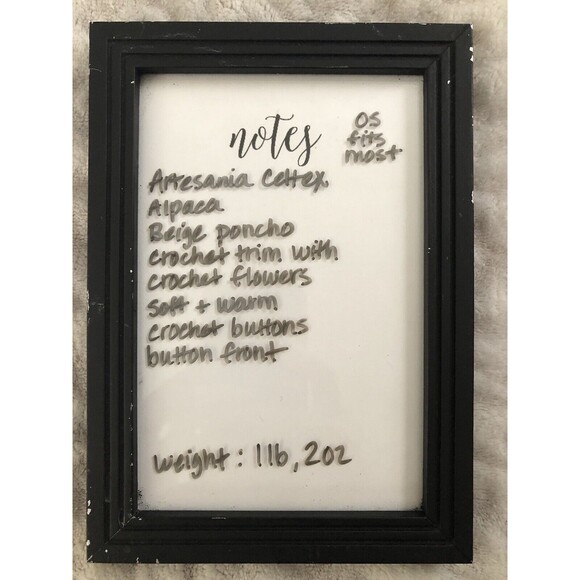 notes
OS
fits
most
Artesania Celtex,
Alpaca
Beige poncho
crochet trim with
crochet flowers
soft + warm
crochet buttons
button front
weight : 1 lb, 2oz